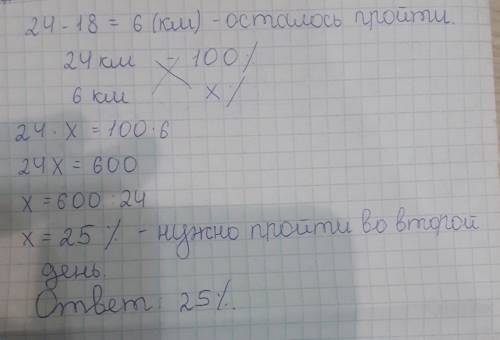 24 - 18 = 6 (км) - осталось пройти.
24 км - 100 %
6 км x %
24 · x = 100 · 6
24x = 600
x = 600 : 24
x = 25 % - нужно пройти во второй
день.
Ответ: 25 %.